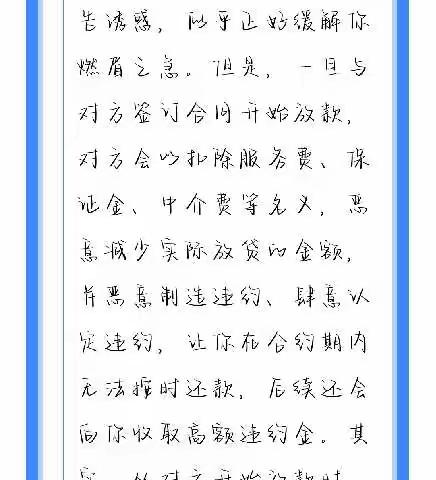 告诱惑，似乎正好缓解你
燃眉之急。但是，一旦与
对方签订合同开始放款，
对方会以扣除服务费、保
证金、中介费等名义，恶
意减少实际放贷的金额，
并恶意制造违约、肆意认
定违约，让你在合约期内
无法按时还款，后续还会
向你收取高额违约金。其
实，从对方开始放款时